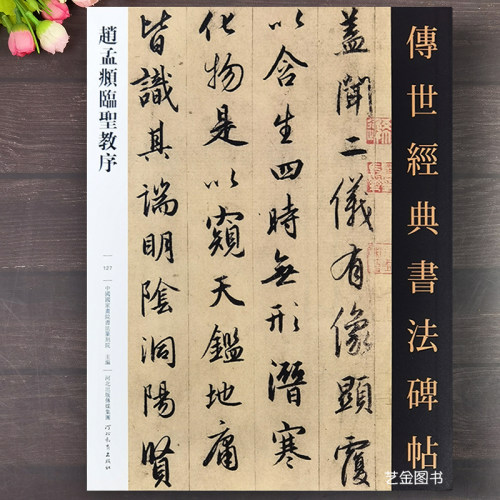 傳世經典書法碑帖
蓋聞二儀有像顯覆
以含生四時無形潛寒
化物是以窺天鑑地庸
皆識其端明陰洞陽賢
趙孟頫臨聖教序
127
中國國家書院書法篆刻院 主編
河北出版傳媒集團
河北教育出版社
艺金图书